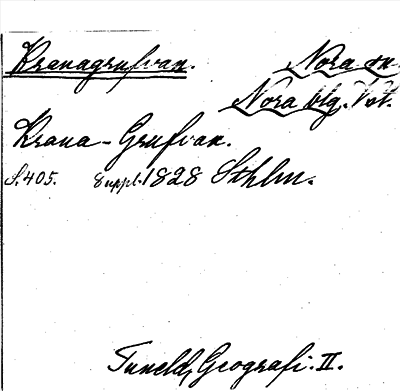 Kranagrufvan. Nora sn.
Nora blg. Vstm.
Krana-Grufvan.
S. 405. Suppl. 1828 Sthlm.
Tuneld, Geografi. II.